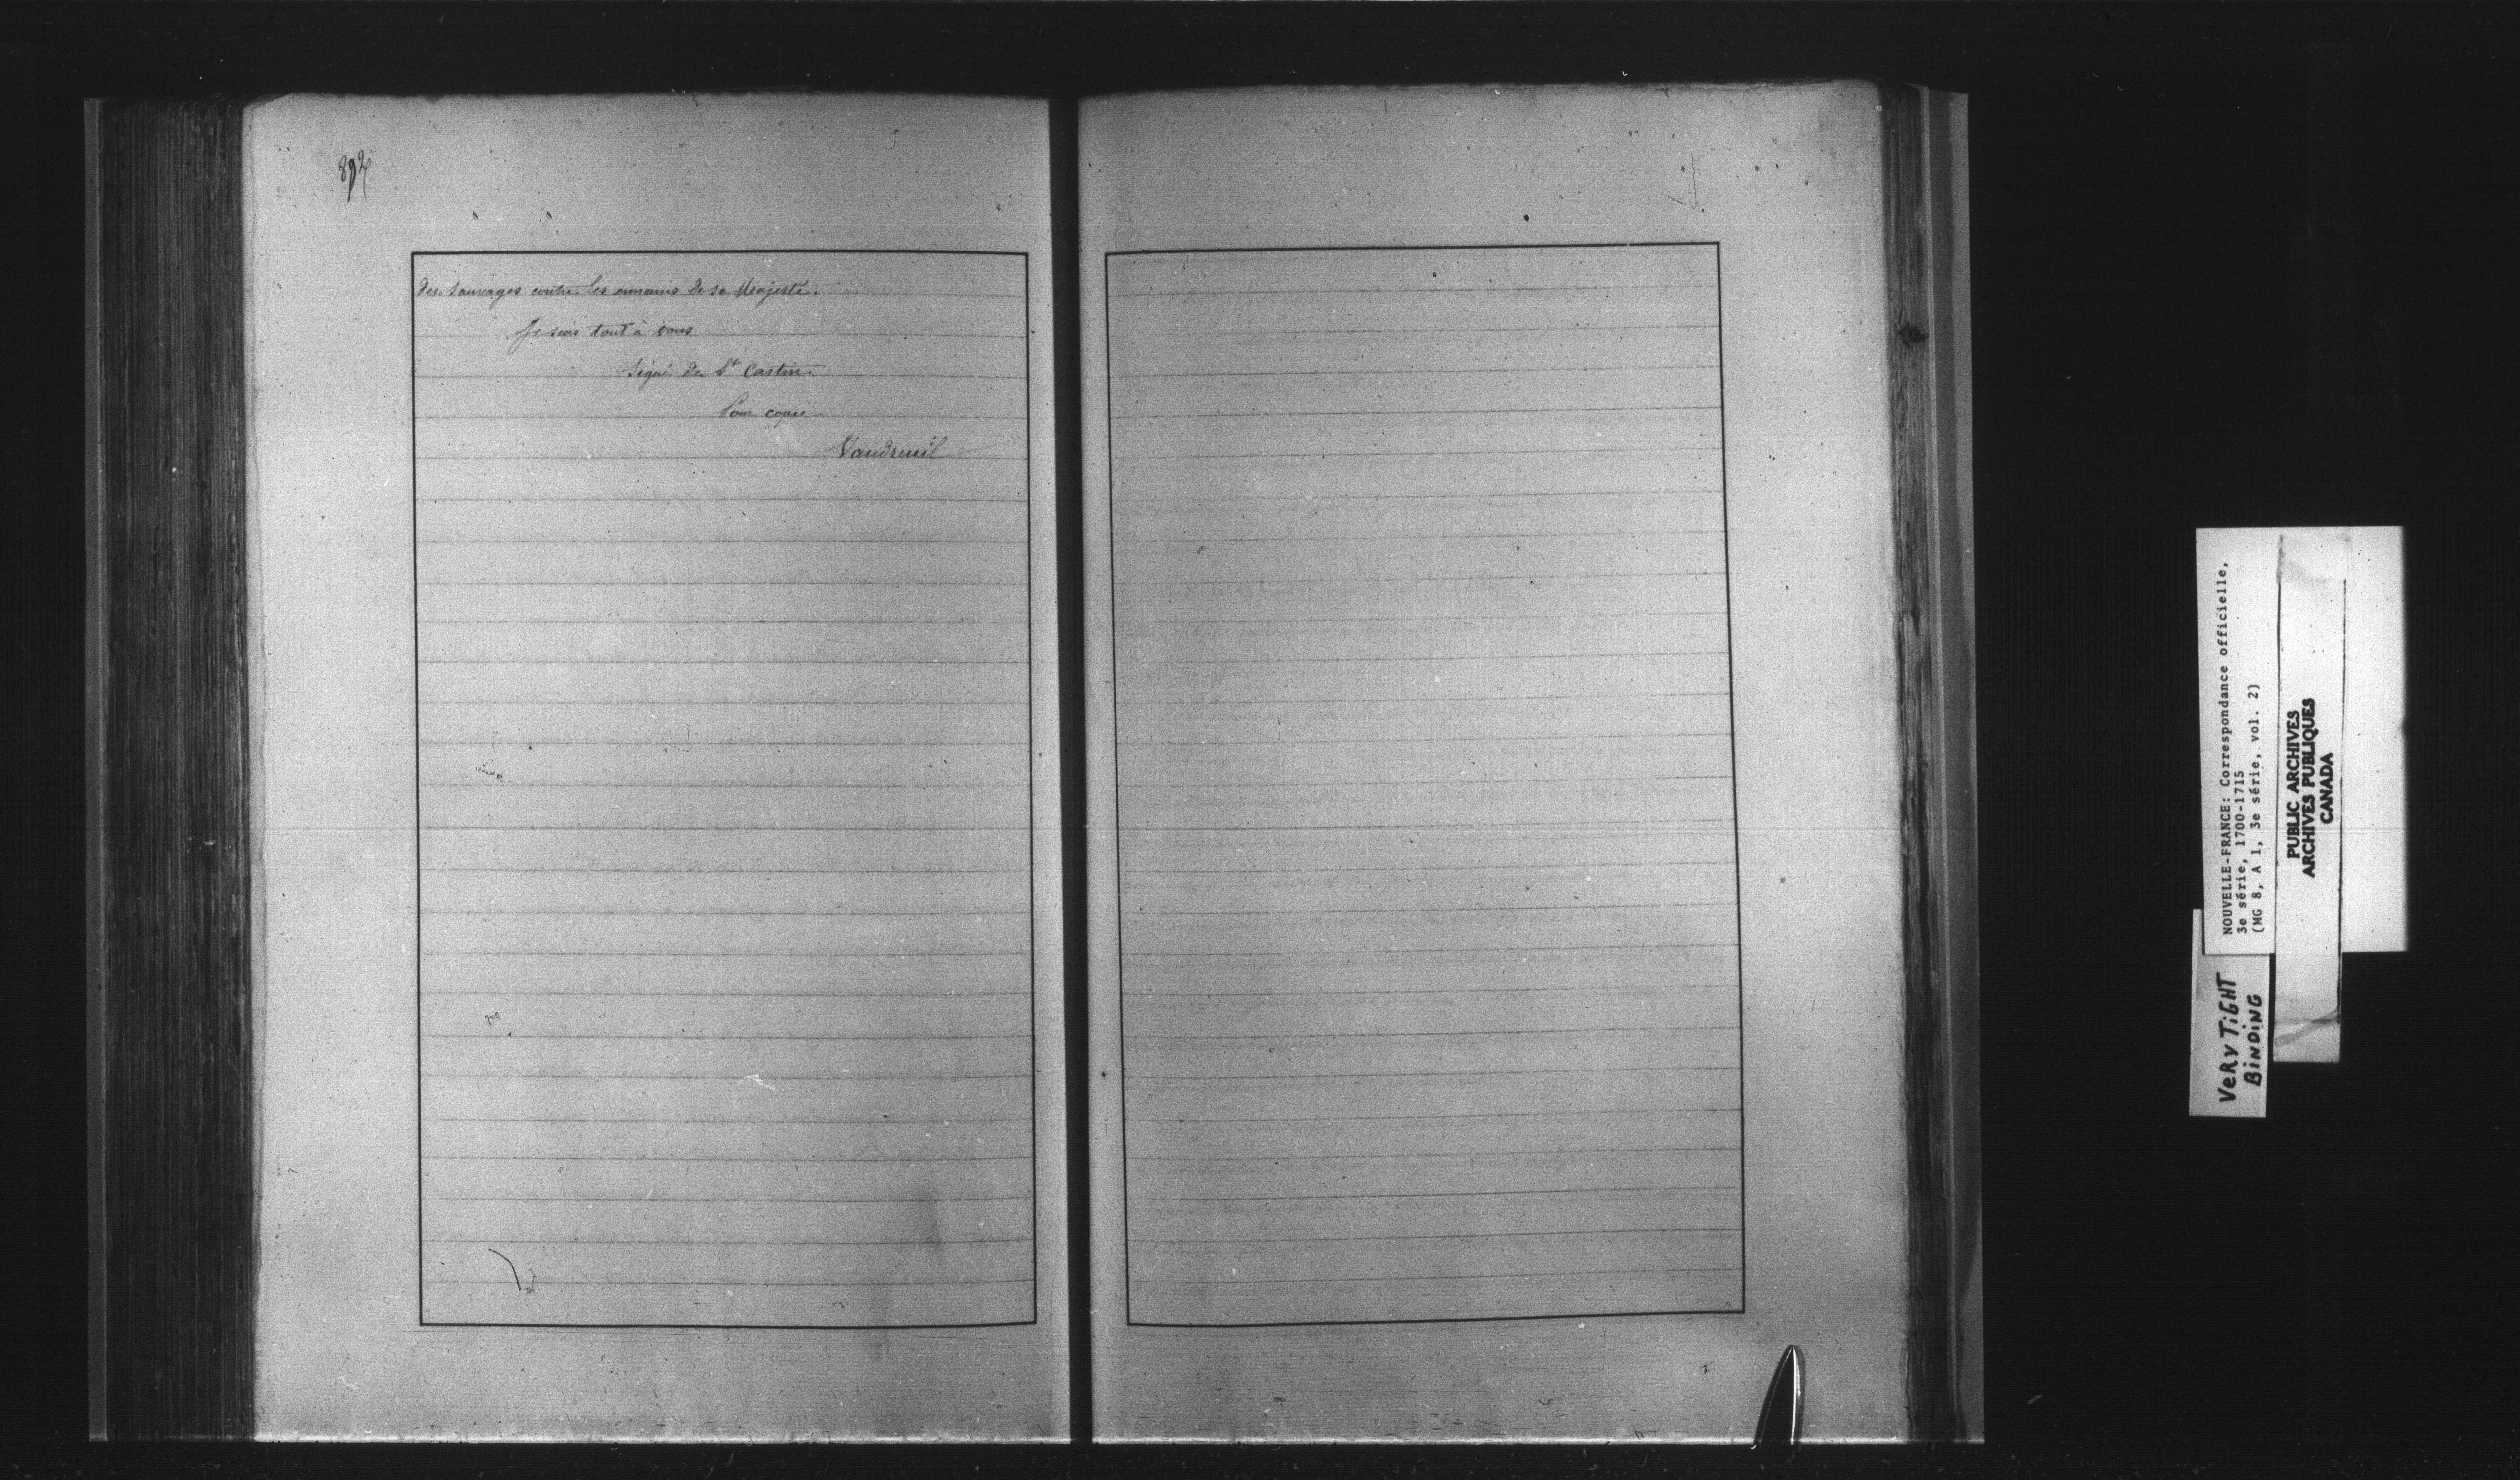 892
des Sauvages contre les ennemis de sa Majesté.
Je suis tout à vous
Signé de St Castin.
Pour copie
Vaudreuil
NOUVELLE-FRANCE: Correspondance officielle,
3e série, 1700-1715
(MG 8, A 1, 3e série, vol. 2)
PUBLIC ARCHIVES
ARCHIVES PUBLIQUES
CANADA
VERY TiGHT
BiNDiNG